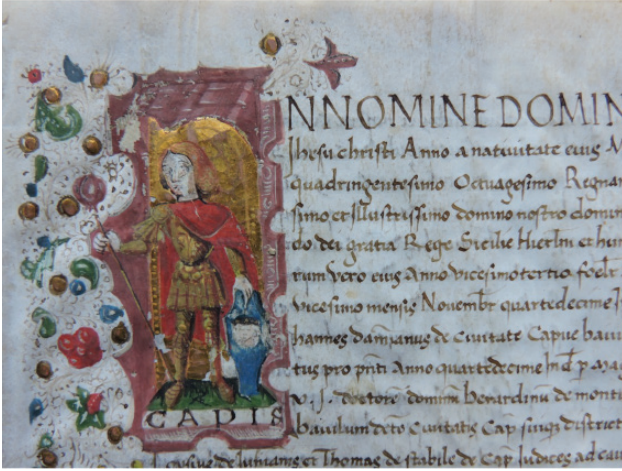 NNOMINE DOMIN
Jhesu christi Anno a natiuitate eius M
quadringentesimo Octuagesimo Regnan
simo et Jllustrissimo domino nostro domin
do dei gratia Rege Sicilie Hierlm et hun
rum vero eius Anno vicesimotertio foelr
vicesimo mensis Nouembr quartedecime J
hannes dampanus de Ciuitate Capue baiu
tus pro pnti Anno quartedecime Ind p mag
v. J. doctore domino benardinu de mont
baiulum dcto Ciuitatis Cap suiqz district
de et Thomas de stabile de Cap Judices ad
CAPIS